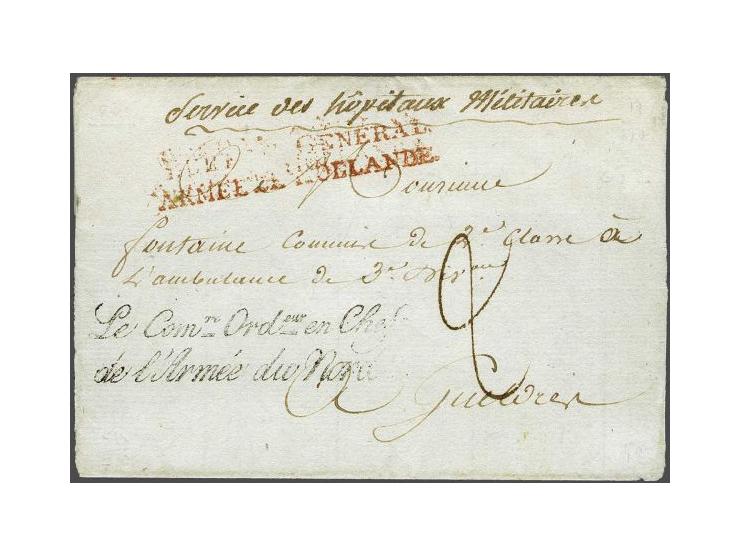 Service des hôpitaux Militaires
GENERAL
ARMÉE DE HOLLANDE.
fontaine Commis de 2e Classe à
L'ambulance de 3e
Le Comre Ordeur en Chef
de l'Armée du Nord
2
A Gueldres